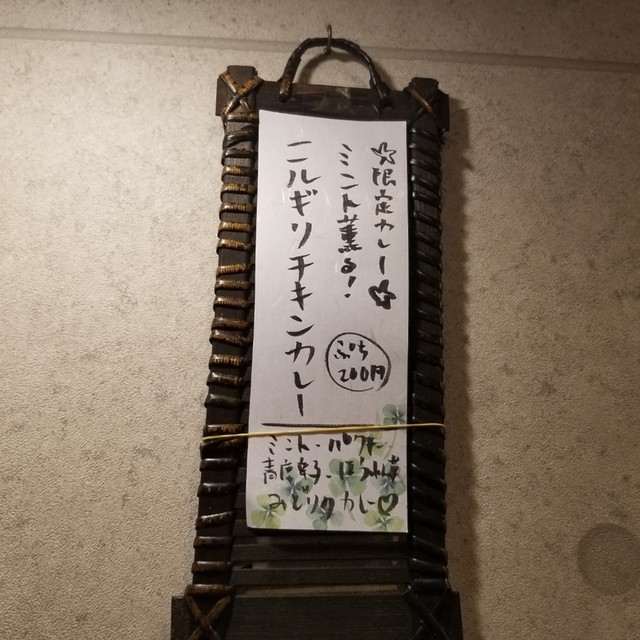 ☆限定カレー☆
ミント薫る!
ニルギリチキンカレー
ぷち
200円
ミント・パクチー
青唐辛子・ほうれん草
みどりのカレー♡